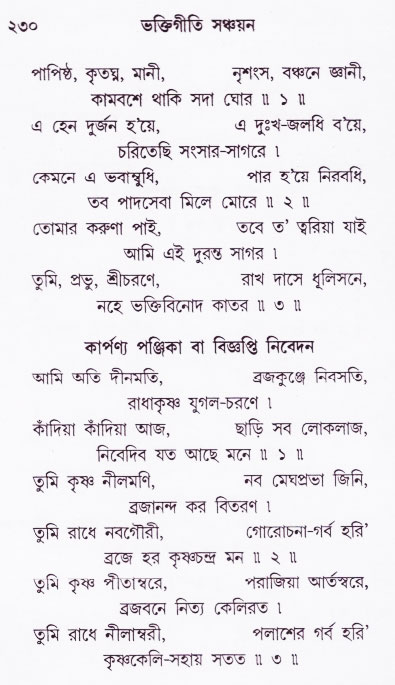 ২৩০ ভক্তিগীতি সঞ্চয়ন
পাপিষ্ঠ, কৃতঘ্ন, মানী, নৃশংস, বঞ্চনে জ্ঞানী,
কামবশে থাকি সদা ঘোর ॥ ১ ॥
এ হেন দুর্জন হ'য়ে, এ দুঃখ-জলধি ব'য়ে,
চরিতেছি সংসার-সাগরে ।
কেমনে এ ভবাম্বুধি, পার হ'য়ে নিরবধি,
তব পাদসেবা মিলে মোরে ॥ ২ ॥
তোমার করুণা পাই, তবে ত' ত্বরিয়া যাই
আমি এই দুরন্ত সাগর ।
তুমি, প্রভু, শ্রীচরণে, রাখ দাসে ধূলিসনে,
নহে ভক্তিবিনোদ কাতর ॥ ৩ ॥
কার্পণ্য পঞ্জিকা বা বিজ্ঞপ্তি নিবেদন
আমি অতি দীনমতি, ব্রজকুঞ্জে নিবসতি,
রাধাকৃষ্ণ যুগল-চরণে ।
কাঁদিয়া কাঁদিয়া আজ, ছাড়ি সব লোকলাজ,
নিবেদিব যত আছে মনে ॥ ১ ॥
তুমি কৃষ্ণ নীলমণি, নব মেঘপ্রভা জিনি,
ব্রজানন্দ কর বিতরণ ।
তুমি রাধে নবগৌরী, গোরোচনা-গর্ব হরি'
ব্রজে হর কৃষ্ণচন্দ্র মন ॥ ২ ॥
তুমি কৃষ্ণ পীতাম্বরে, পরাজিয়া আর্তস্বরে,
ব্রজবনে নিত্য কেলিরত ।
তুমি রাধে নীলাম্বরী, পলাশের গর্ব হরি'
কৃষ্ণকেলি-সহায় সতত ॥ ৩ ॥